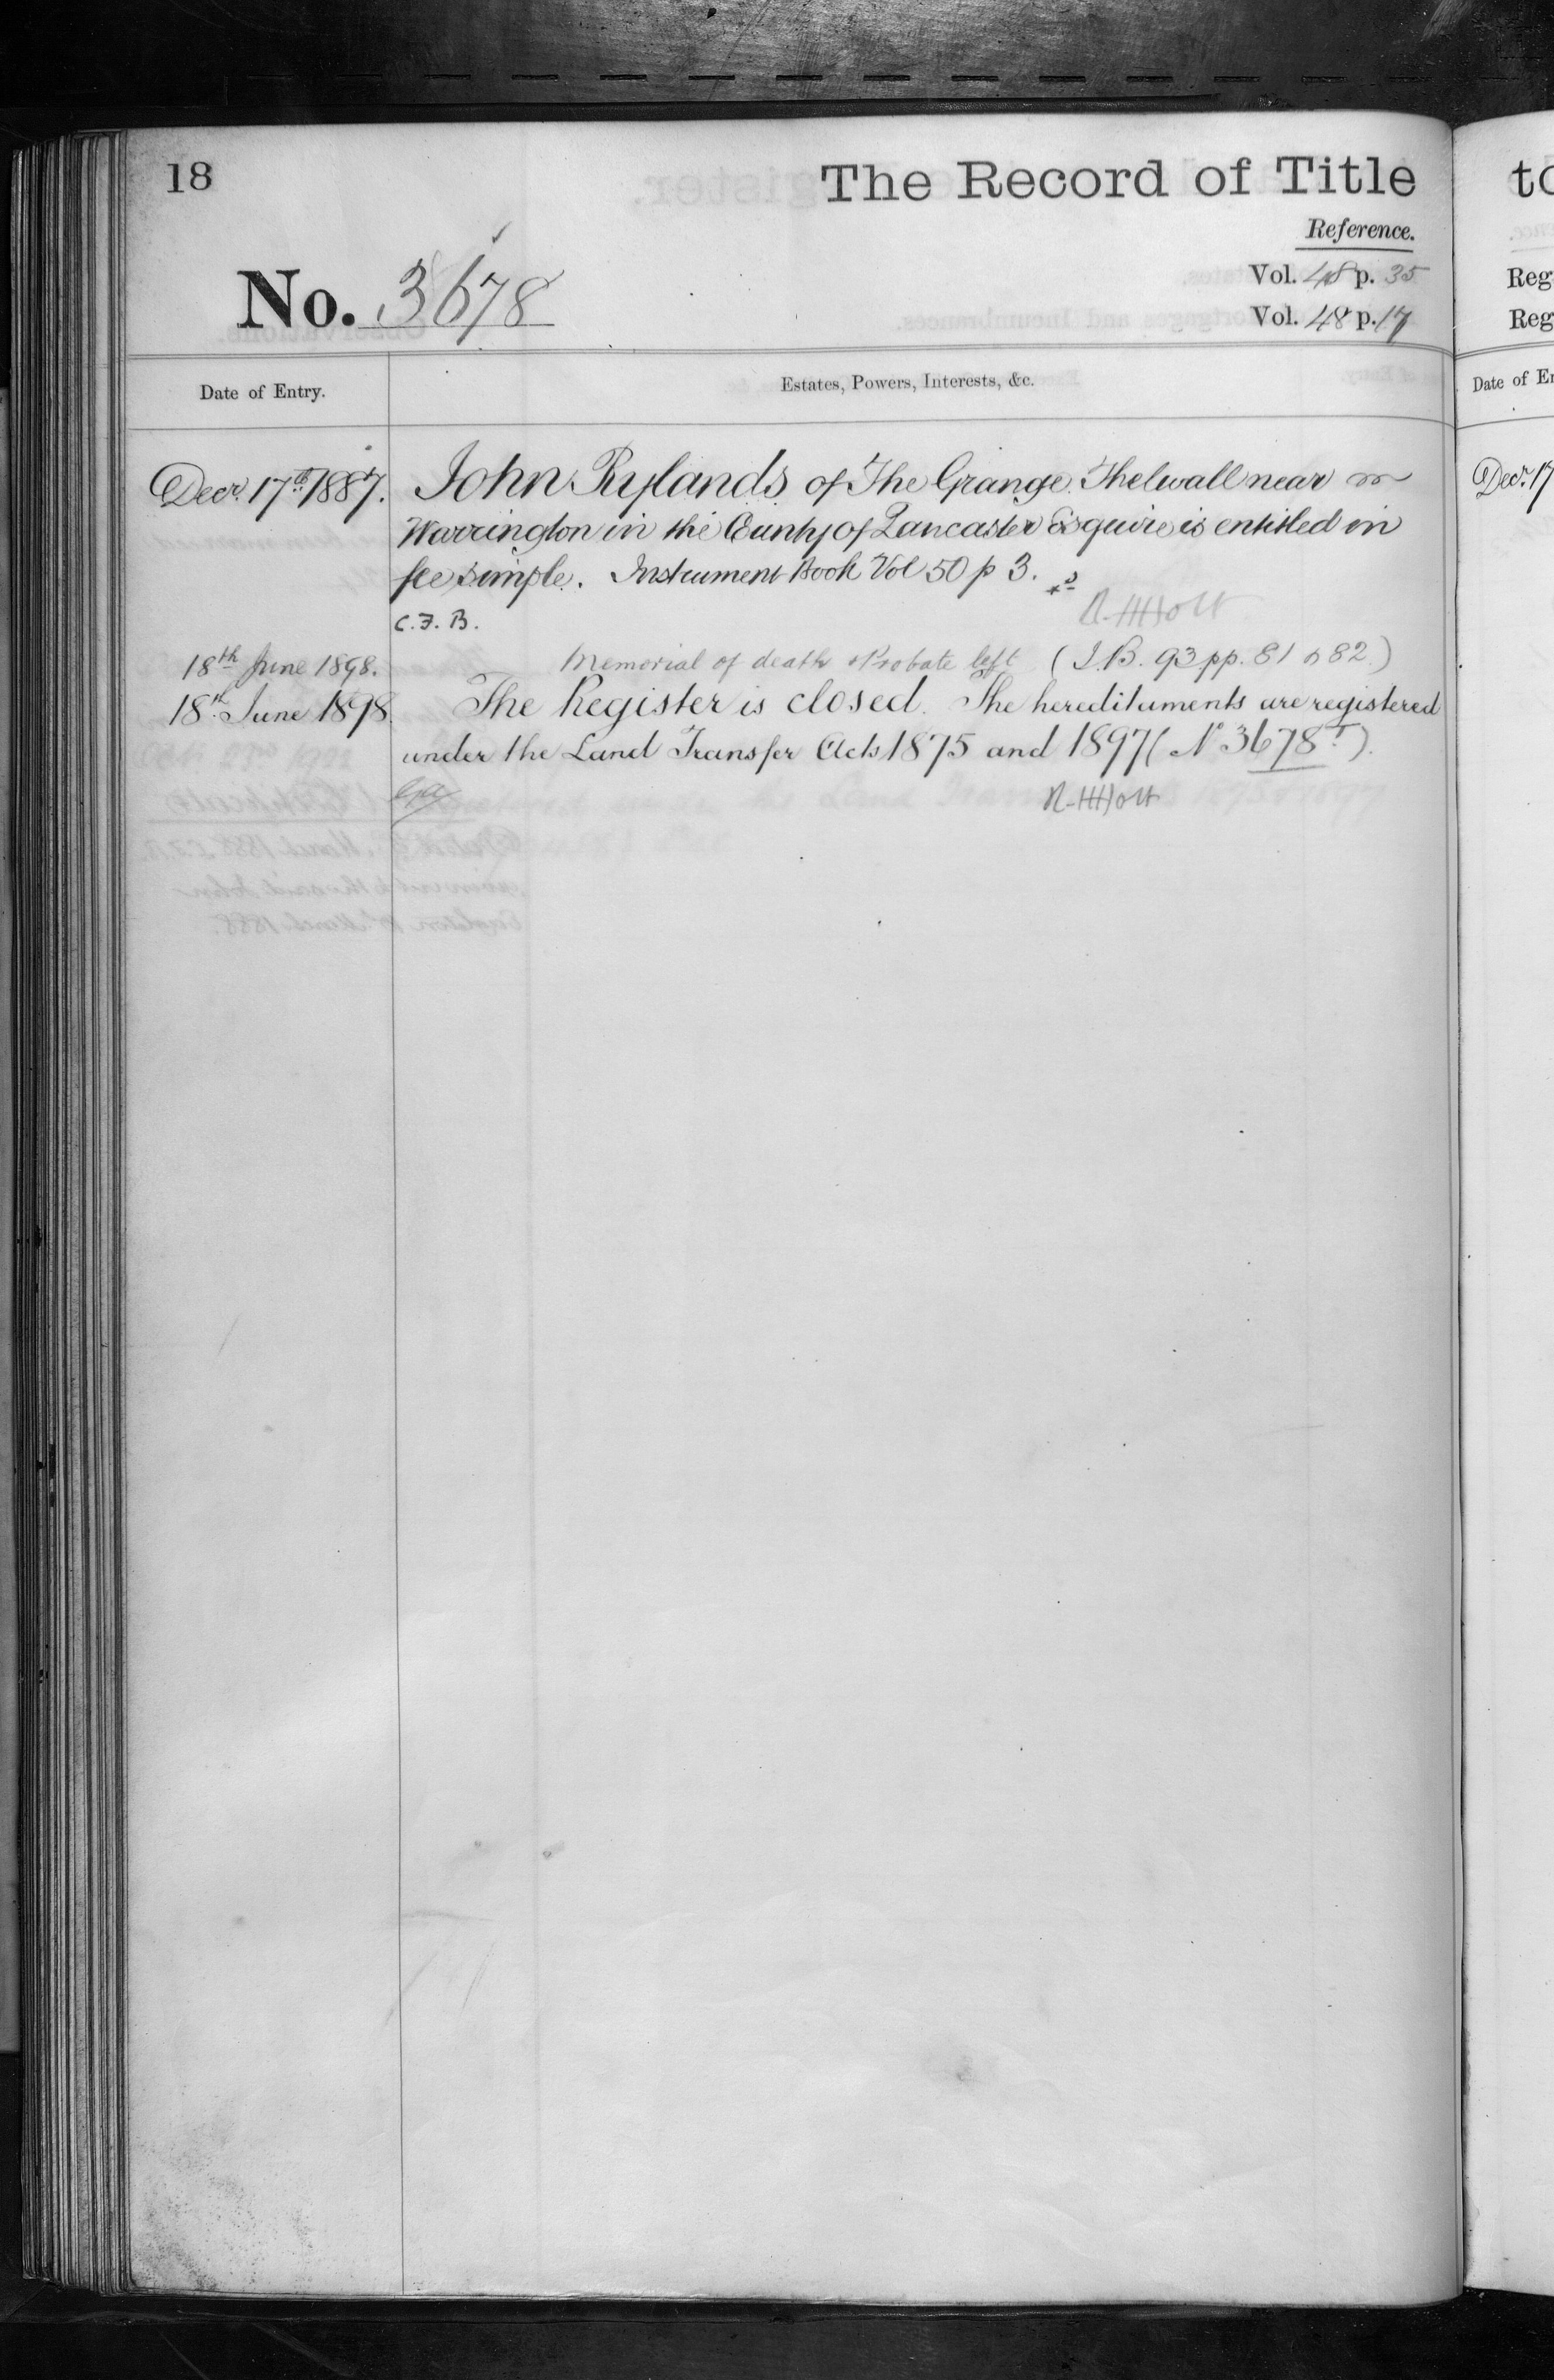 18
The Record of Title
Reference.
No. 3678
Vol. 48 p. 35
Vol. 48 p. 17
Date of Entry.
Estates, Powers, Interests, &c.
Decr. 17th 1887.
John Rylands of The Grange Thelwall near
Warrington in the County of Lancaster Esquire is entitled in
fee simple. Instrument Book Vol 50 p 3.
C.F.B.
R. H Holt
18th June 1898.
Memorial of death & Probate left (I.B. 93 pp. 81 & 82.)
18th June 1898
The Register is closed. The hereditaments are registered
under the Land Transfer Acts 1875 and 1897 (No 3678T).
R. H Holt
to
Reg
Reg
Date of En
Decr. 17